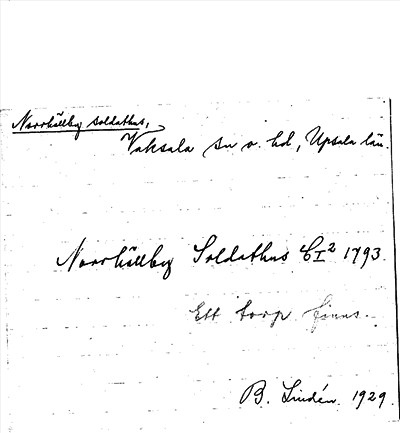 Norrhällby soldathus,
Vaksala sn o. hd, Upsala län.
Norrhällby Soldathus CI² 1793.
Ett torp finns.
B. Lindén. 1929.